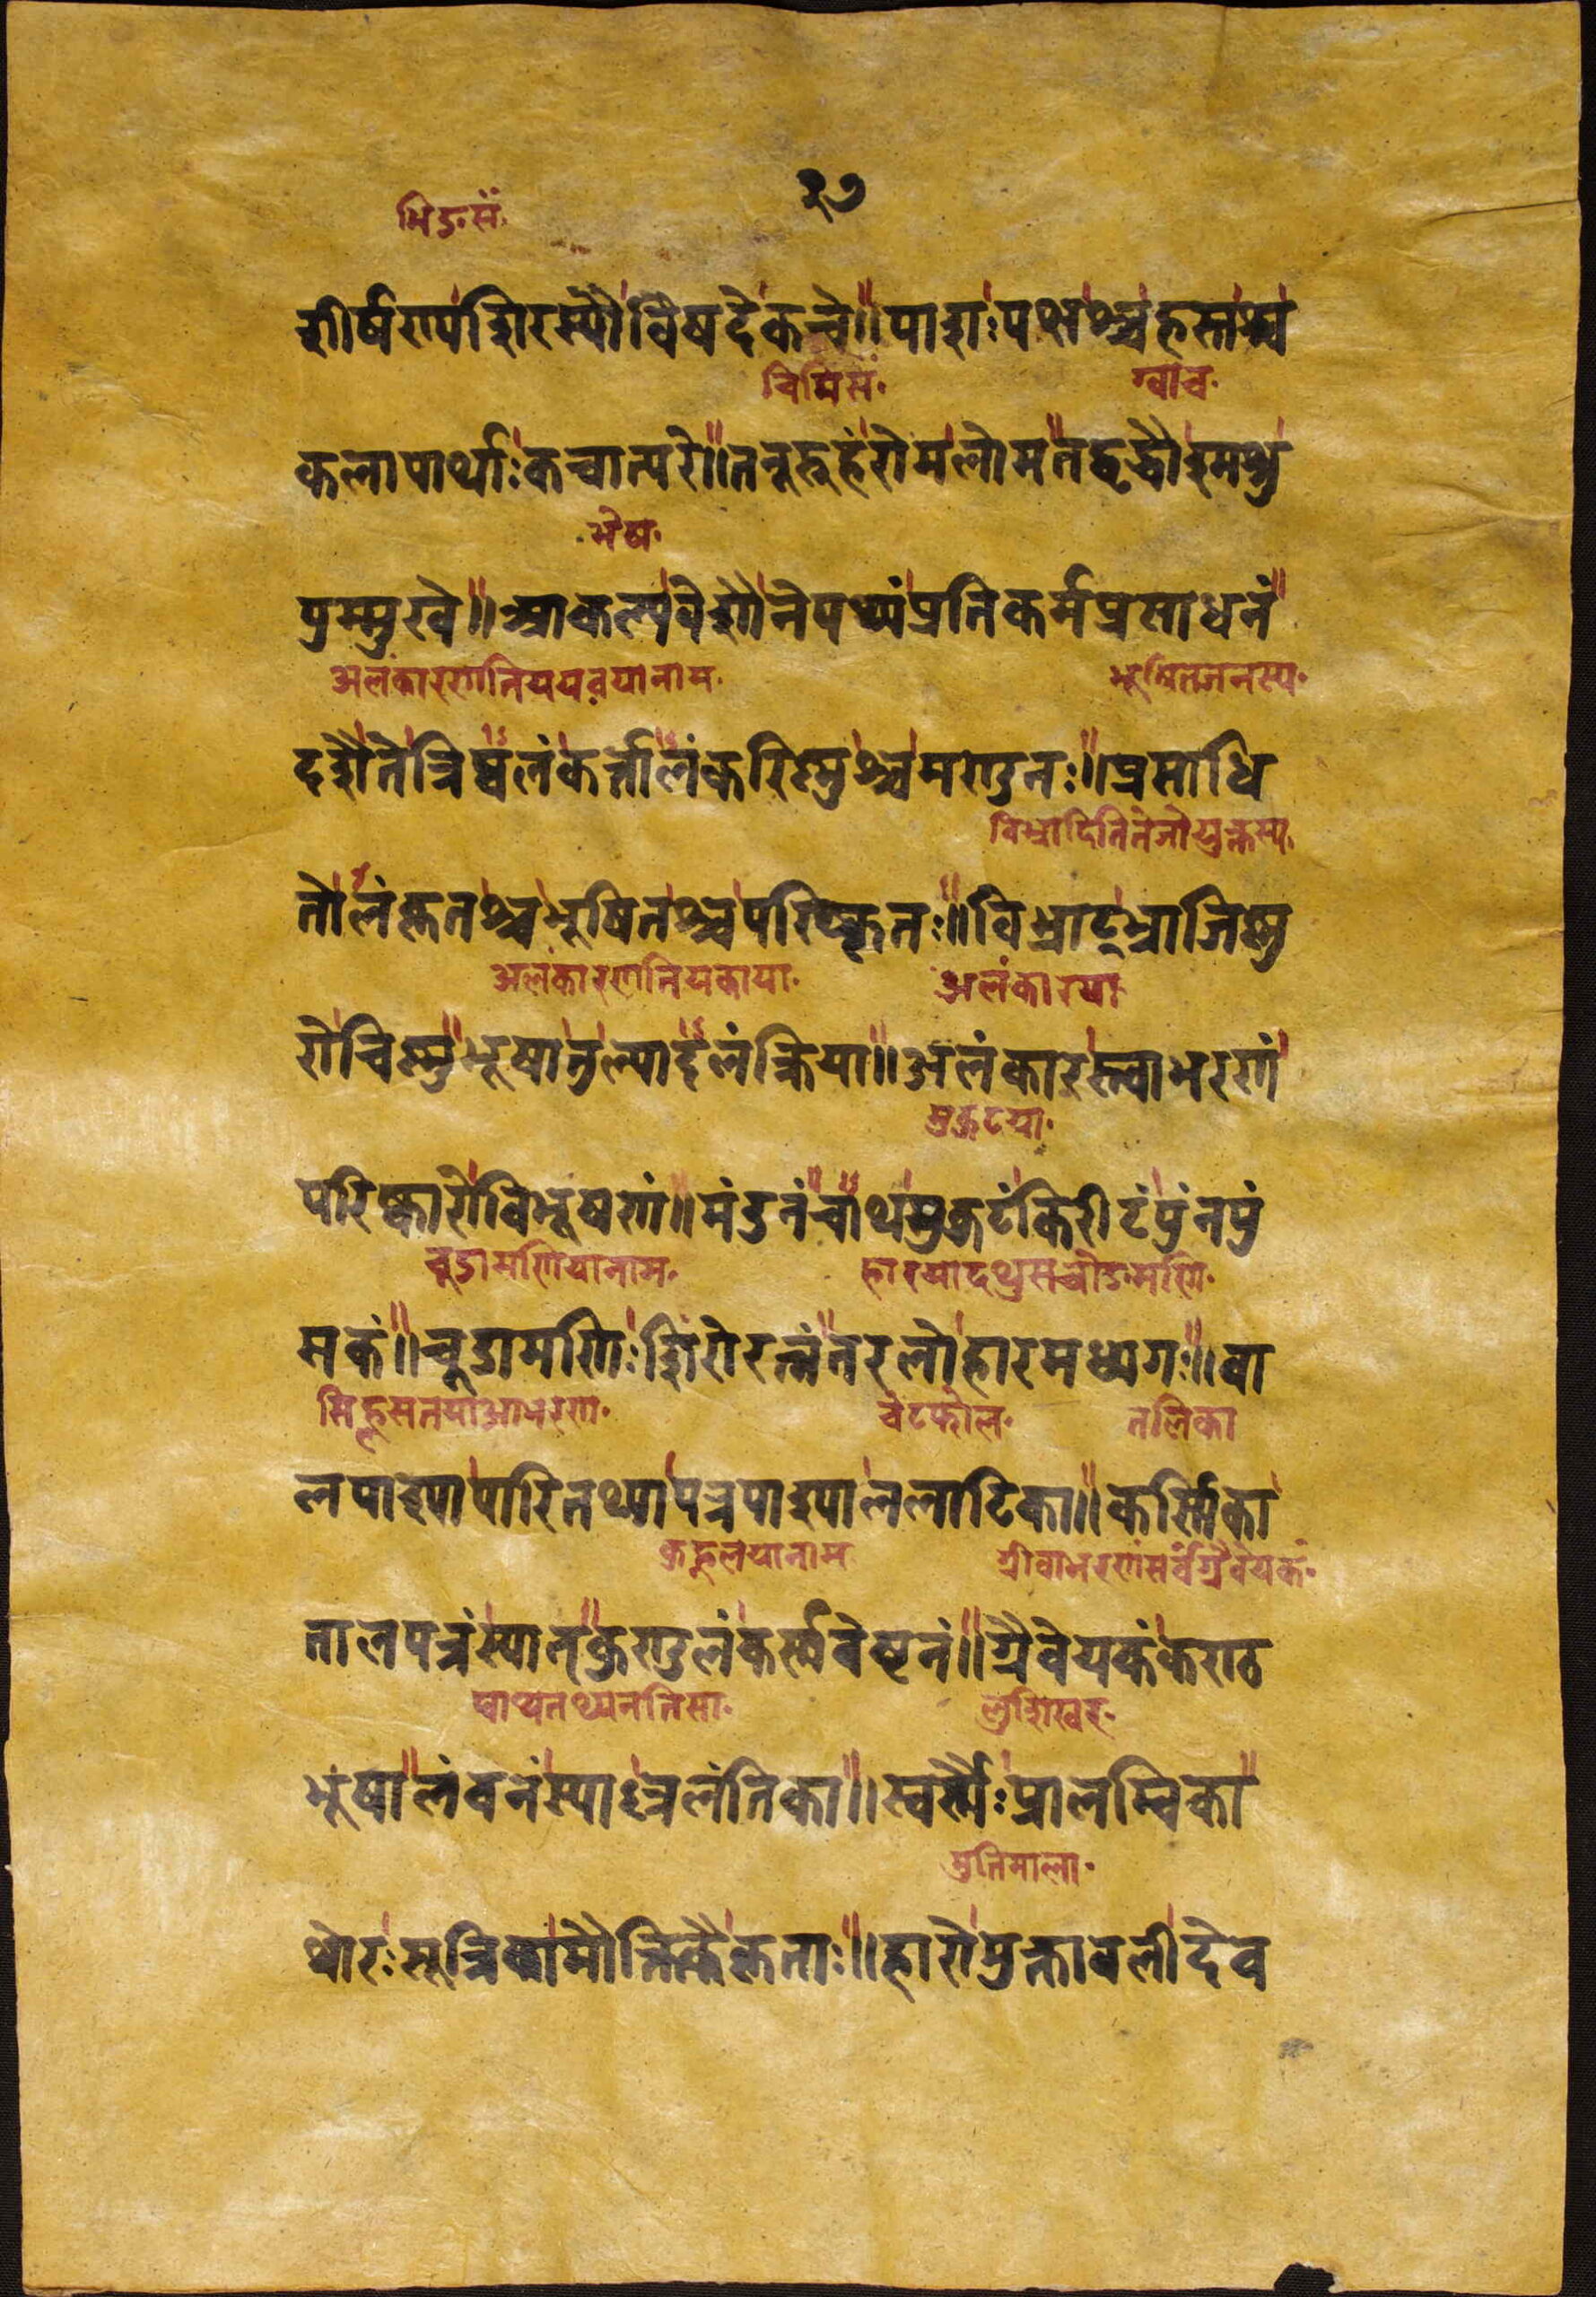 २७
मिङसँ
शीर्षण्यशिरस्यौविषदेकचे॥पाशःपक्षश्चहस्तश्च
चिमिसं
ग्वाच
कलापार्थाःकचात्परे॥तनूरुहंरोमलोमतद्वृद्धौश्मश्रु
पुम्मुखे॥आकल्पवेशौनेपथ्यंप्रतिकर्मप्रसाधनं
अलंकारणनिययवयानाम
भूषितजनस्य
दशैतेत्रिष्वलंकर्त्तालंकरिष्णुश्चमण्डितः॥प्रसाधि
विभ्रादितितेजोयुक्तस्य
तोलंकृतश्चभूषितश्चपरिष्कृतः॥विभ्राट्भ्राजिष्णु
अलंकारणनियकाया
अलंकारया
रोचिष्णुभूषातुल्यादलंक्रिया॥अलंकारस्त्वाभरणं
मुकुटया
परिष्कारोविभूषणं॥मंडनंचाथमुकुटंकिरीटंपुंनपुं
चूडामणियानाम
हारयादथुसचोङमणि
सकं॥चूडामणिःशिरोरत्नंतरलोहारमध्यगः॥वा
मिह्रूसतयाआभरण
चेटफोल
तलिका
लपाश्यापारितथ्यापत्रपाश्याललाटिका॥कर्णिका
कुह्रूलयानाम
ग्रीवाभरणंसर्वंग्रैवेयकं
तालपत्रंस्यात्कुण्डलंकर्णवेष्टनं॥ग्रैवेयकंकण्ठ
भूषालंवनंस्याल्ललंतिका॥स्वर्णैःप्रालम्बिका
मुतिमाला
थोरःसूत्रिकामौक्तिकैःकृताः॥हारोमुक्तावलीदेव